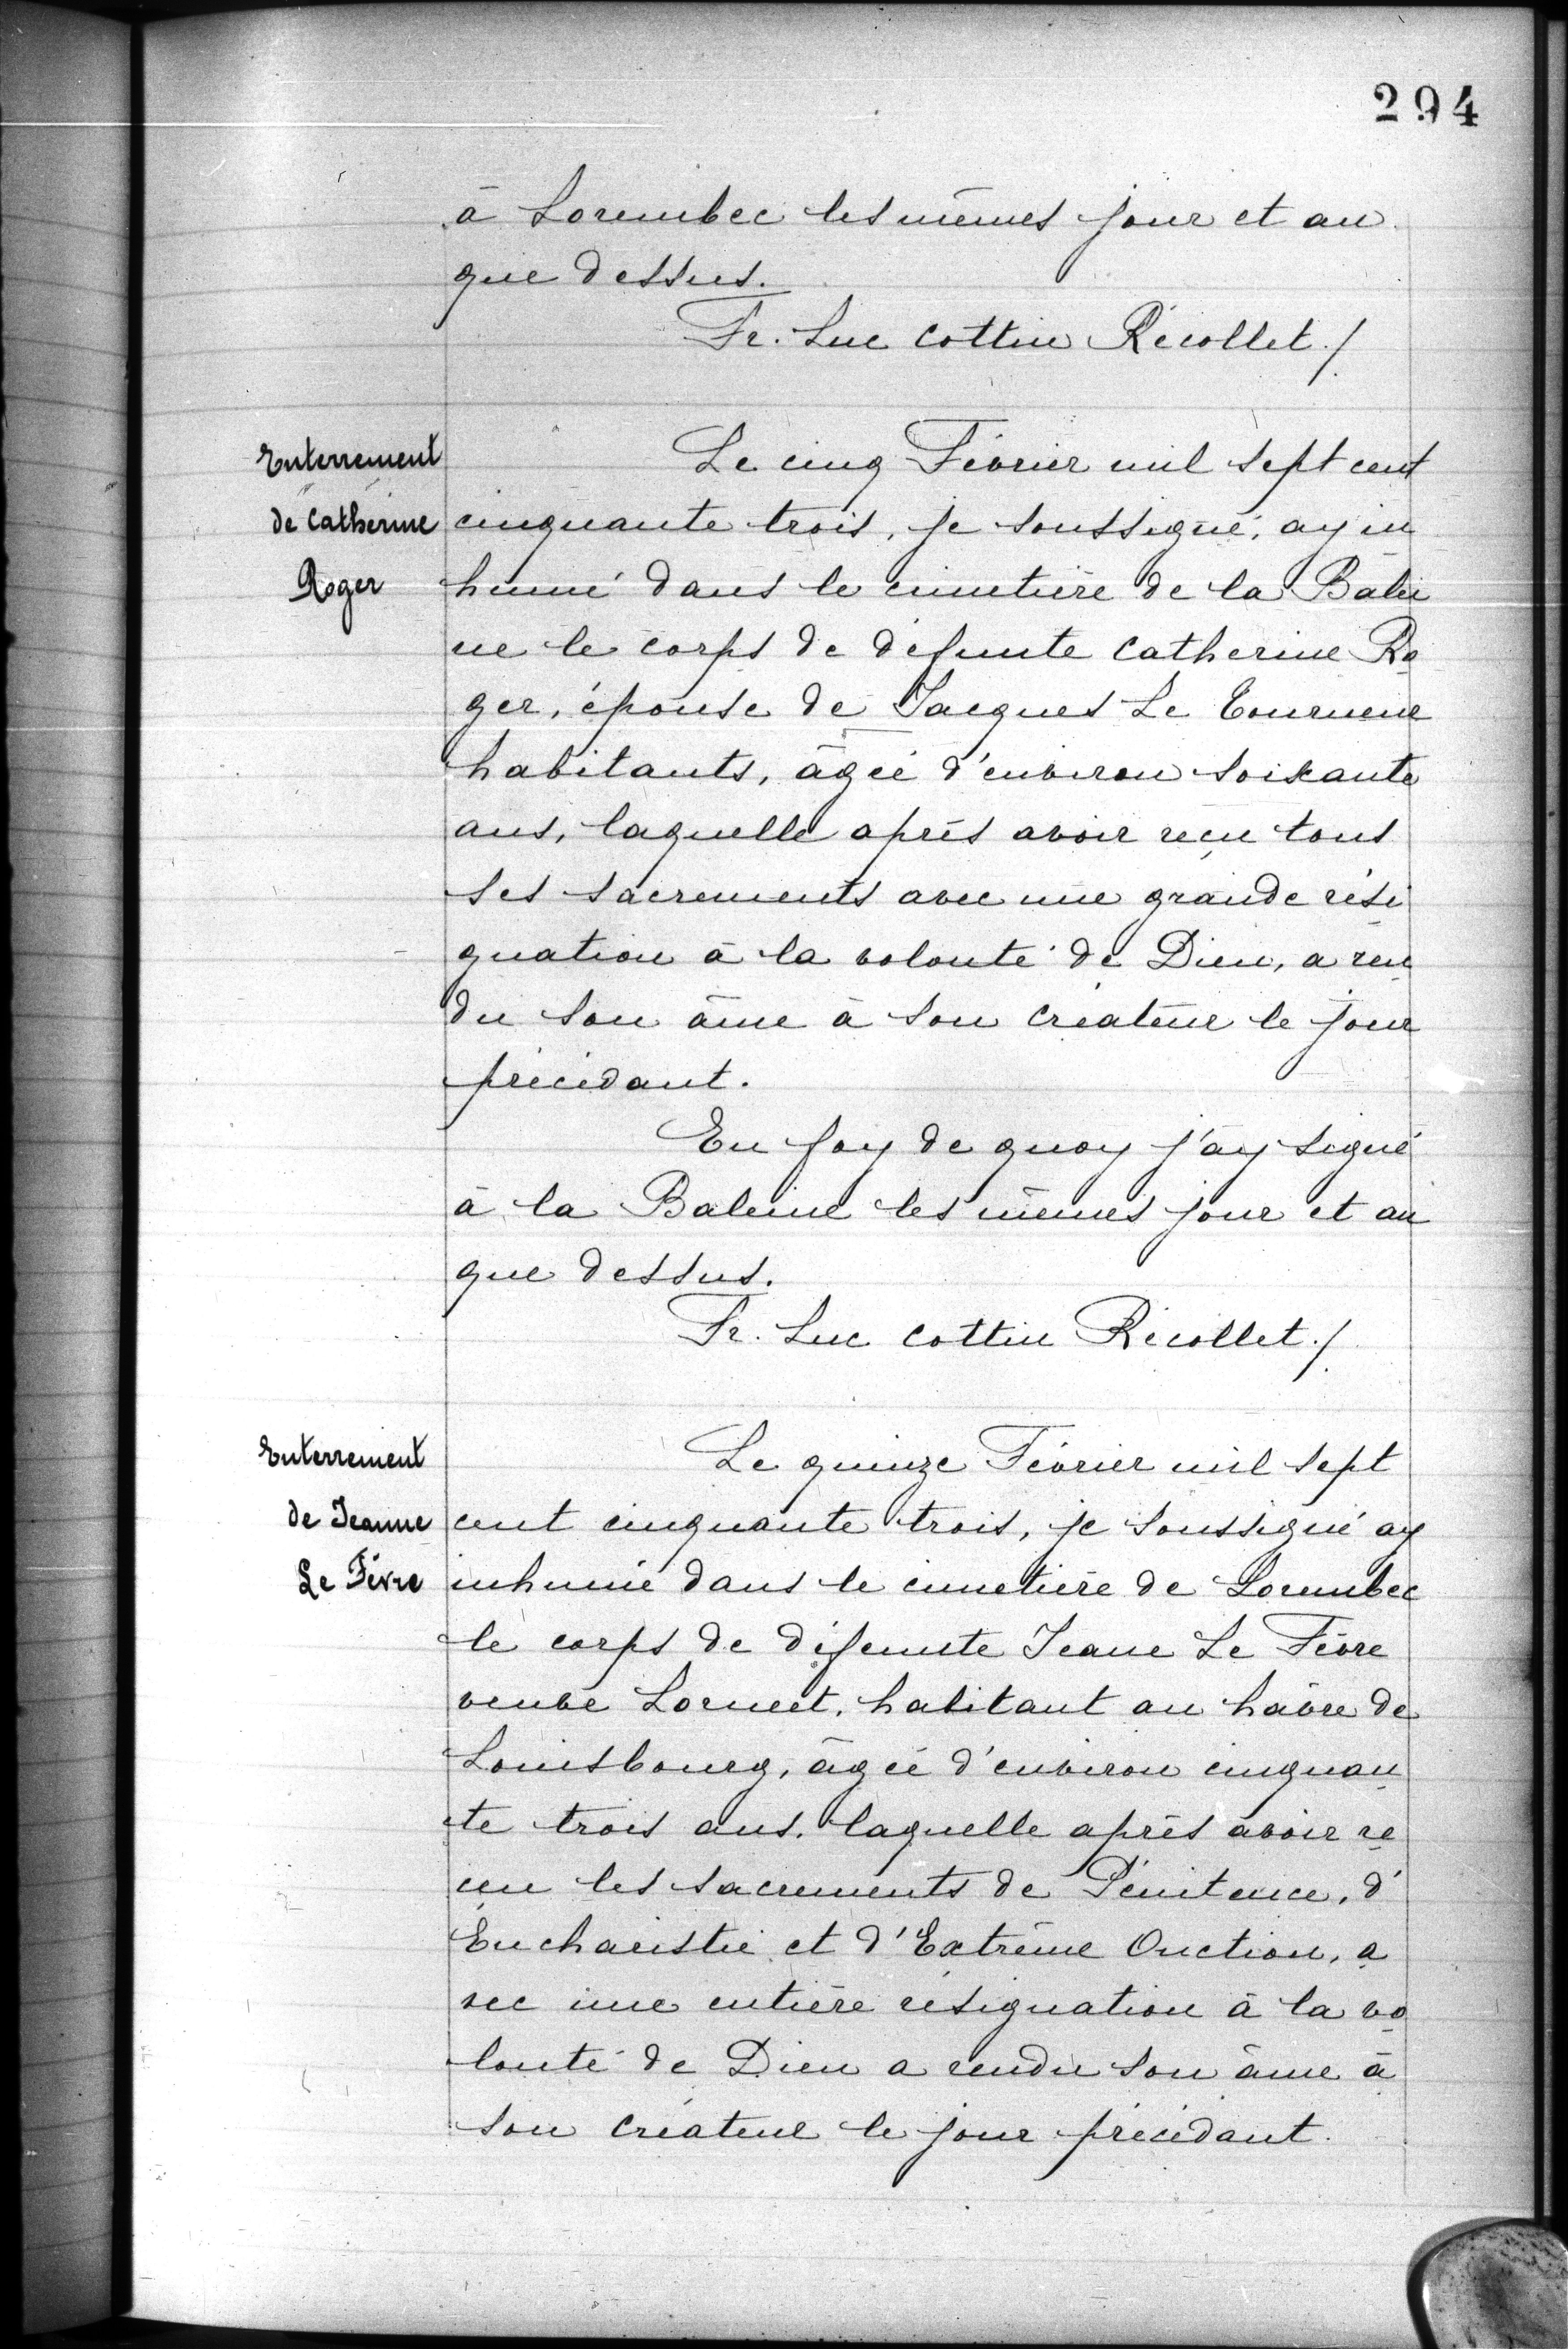 294
à Lorembec les mêmes jour et an
que dessus.
Fr. Luc Cottin Récollet./
Enterrement
de Catherine
Roger
Le cinq Février mil sept cent
cinquante trois, je soussigné, ay in
humé dans le cimetière de la Balei
ne le corps de défunte Catherine Ro
ger, épouse de Jacques Le Tourneur
habitants, âgée d'environ soixante
ans, laquelle après avoir reçu tous
ses sacrements avec une grande rési
gnation à la volonté de Dieu, a ren
du son âme à son créateur le jour
précédant.
En foy de quoy j'ay signé
à la Baleine les mêmes jour et an
que dessus.
Fr. Luc Cottin Récollet./
Enterrement
de Jeanne
Le Fèvre
Le quinze Février mil sept
cent cinquante trois, je soussigné ay
inhumé dans le cimetière de Lorembec
le corps de défunte Jeane Le Fèvre
veuve Lorneet, habitant au hâvre de
Louisbourg, âgée d'environ cinquan
te trois ans, laquelle après avoir re
çeu les sacrements de Pénitence, d'
Eucharistie et d'Extrême Onction, a
vec une entière résignation à la vo
lonté de Dieu a rendu son âme à
son créateur le jour précédant.